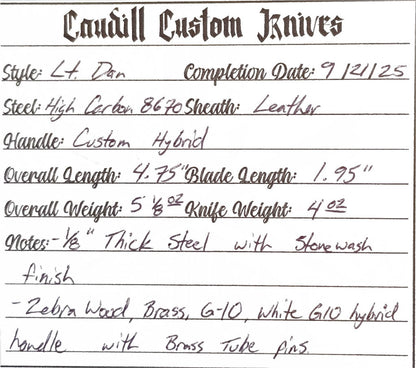 Caudill Custom Knives
Style: Lt. Dan Completion Date: 9/21/25
Steel: High Carbon 8670 Sheath: Leather
Handle: Custom Hybrid
Overall Length: 4.75" Blade Length: 1.95"
Overall Weight: 5 1/8 oz Knife Weight: 4 oz
Notes: - 1/8" Thick Steel with Stonewash
finish
- Zebra Wood, Brass, G-10, White G10 hybrid
handle with Brass Tube pins.